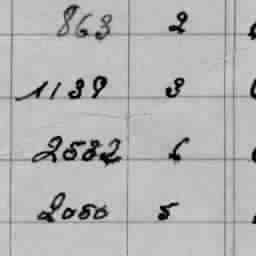 863 2
1139 3
2582 6
2050 5